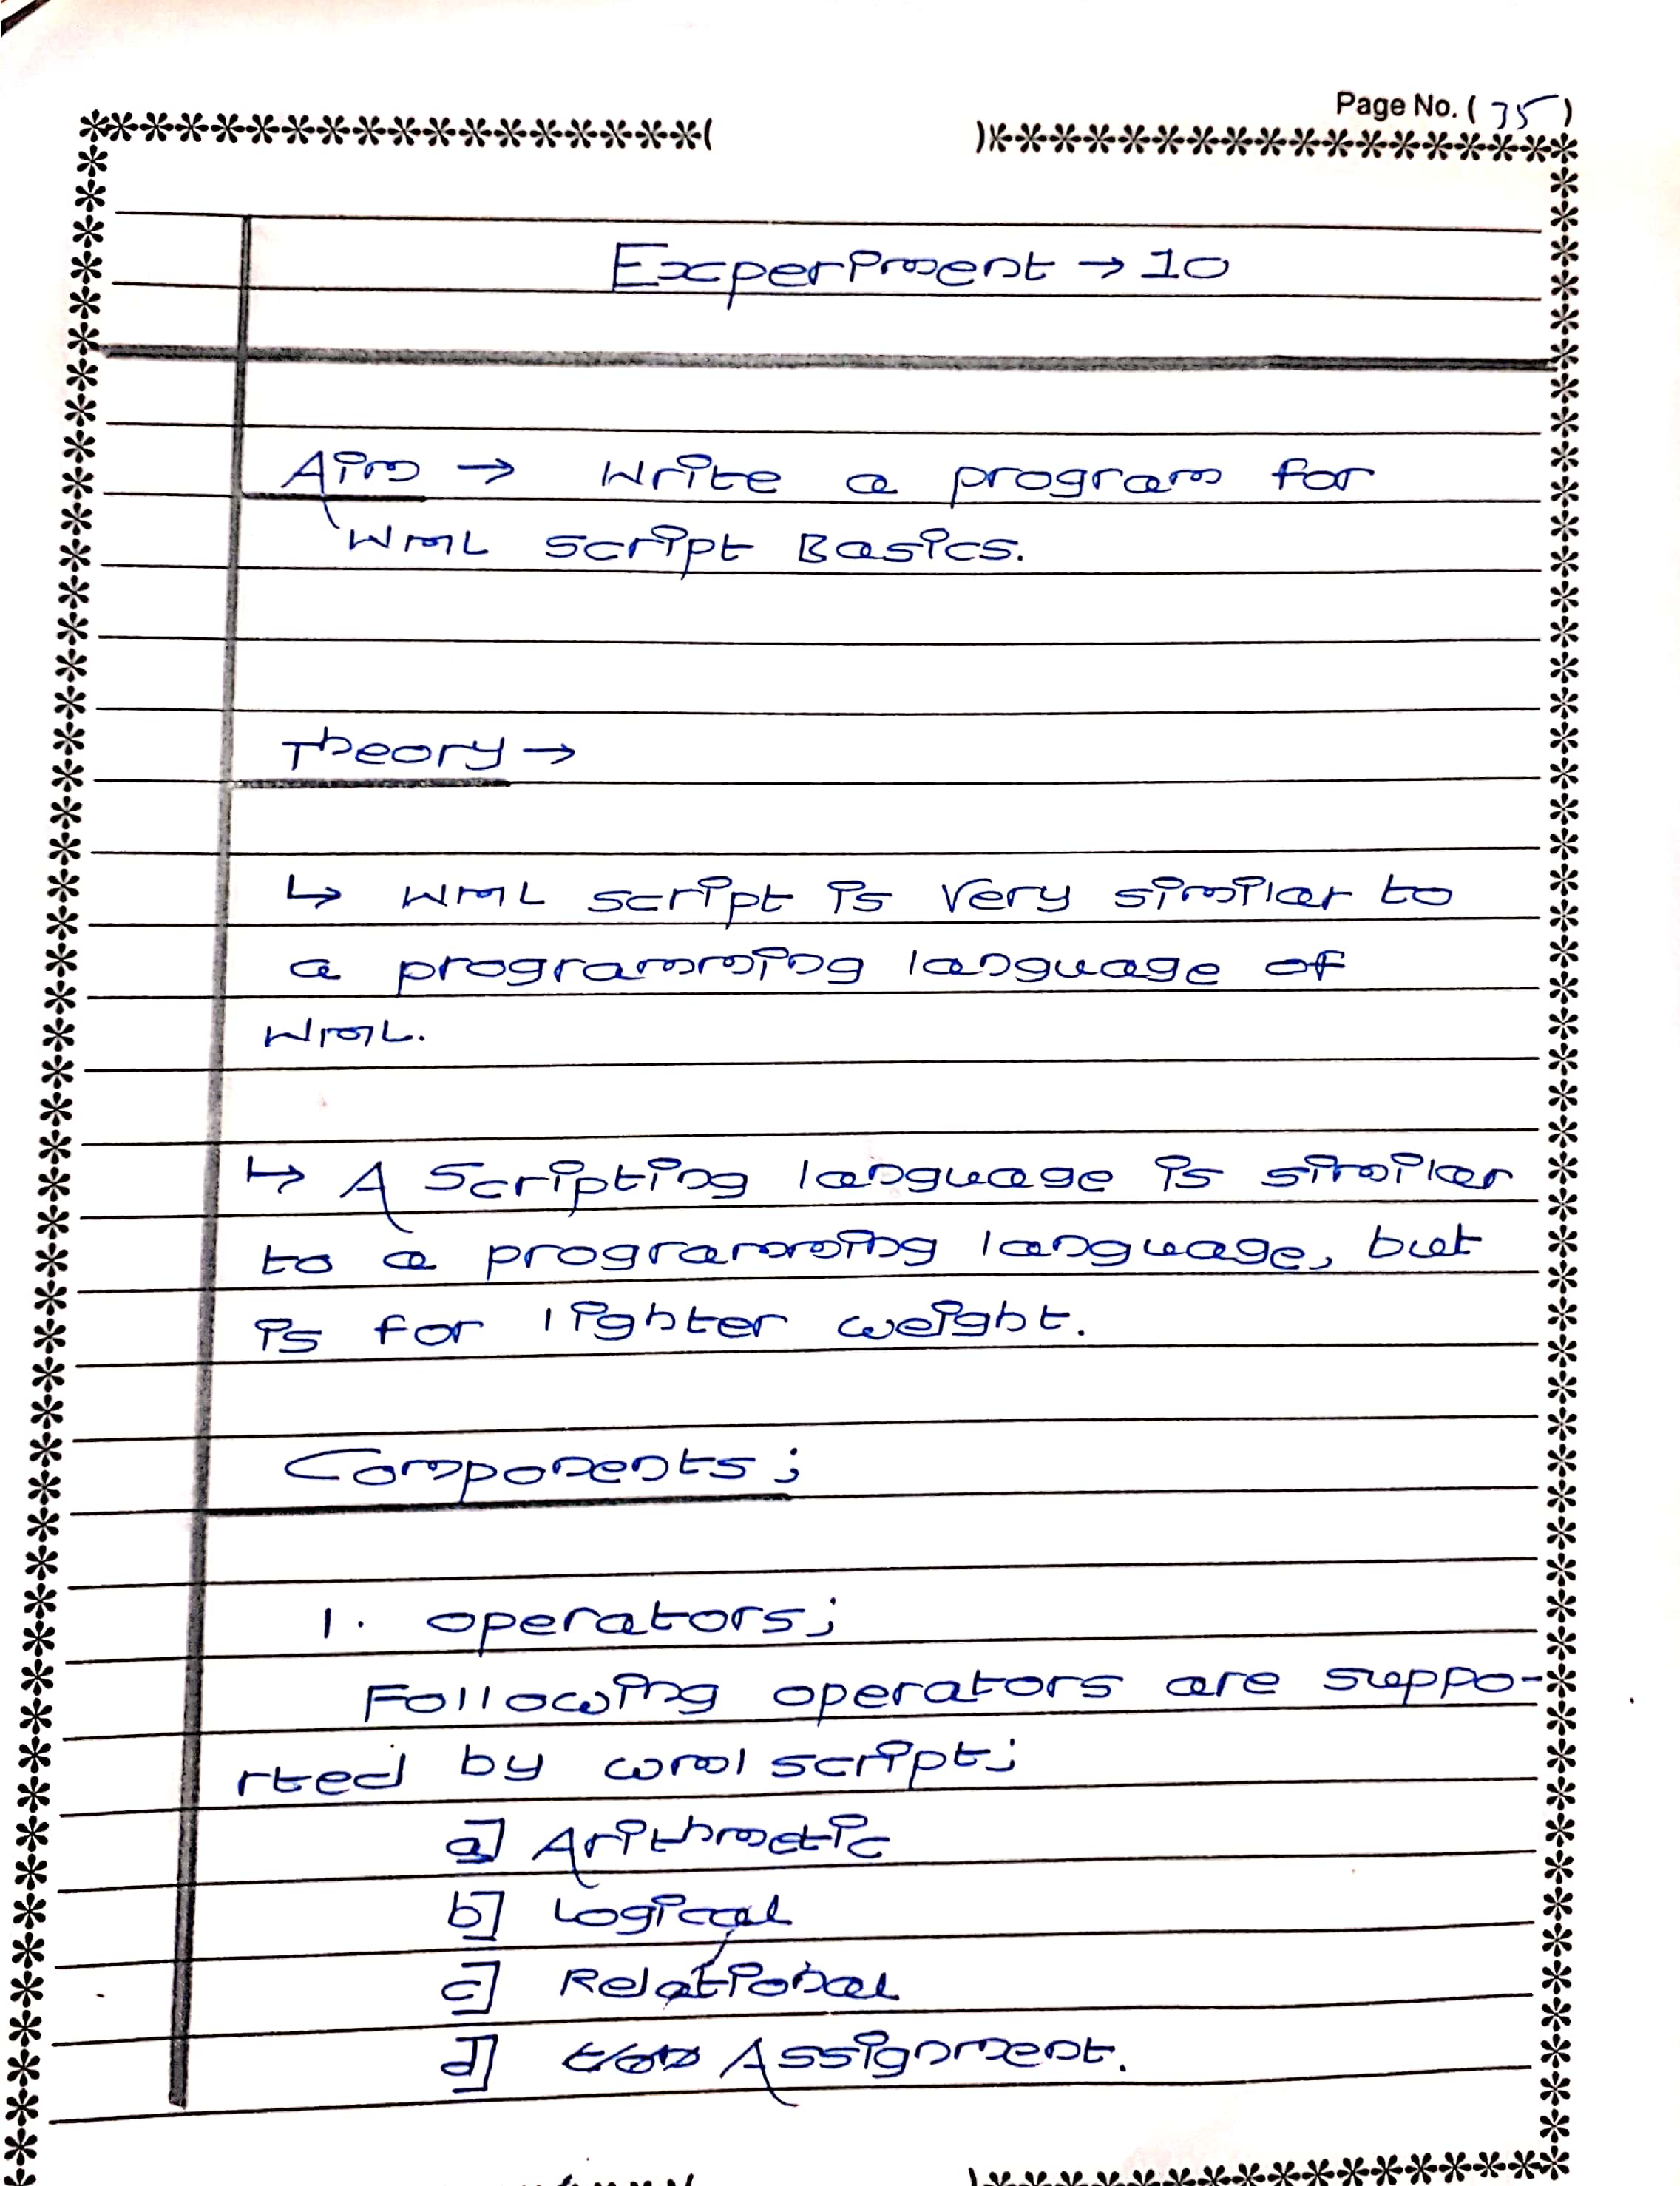 Page No. ( 35 )
Experiment → 10
Aim → Write a program for
WML Script Basics.
Theory →
↳ WML script is very similar to
a programming language of
WML.
↳ A Scripting language is similar
to a programming language, but
is for lighter weight.
Components ;
1. operators ;
Following operators are suppo-
rted by wml script ;
a] Arithmetic
b] Logical
c] Relational
d] Assignment.